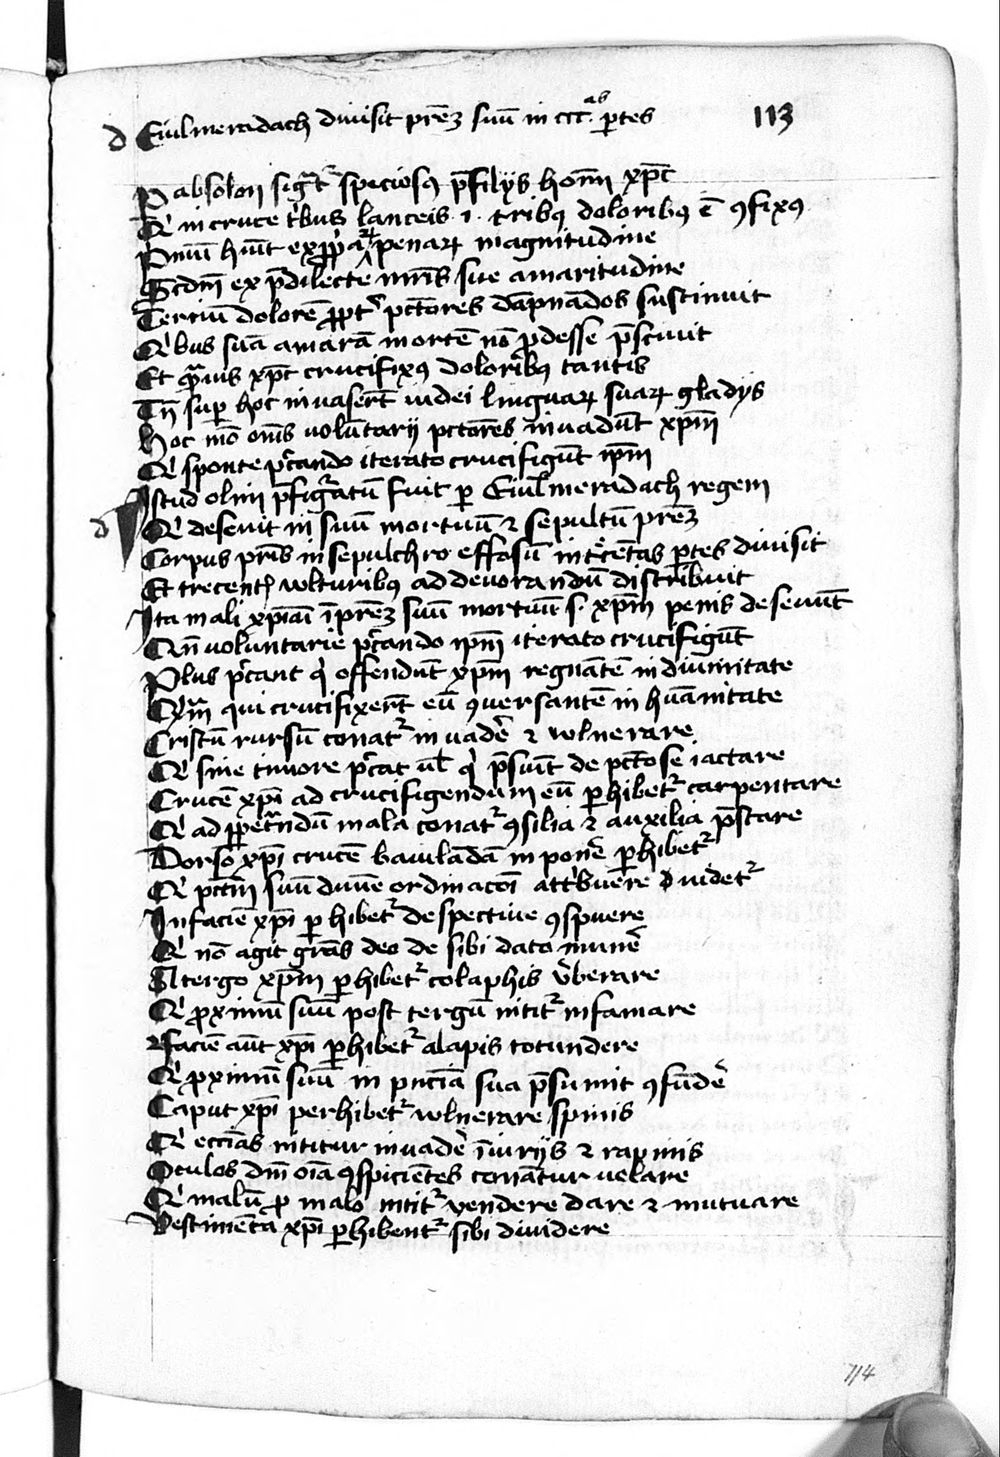 d Eiulmeradach diuisit prēz suū in ccc.ab ꝑtes 113
P absolon sigᵃtʳ speciosꝰ p̄ filijs homīn xp̄c
Qͥ in cruce tͥbus lanceis .i. tribꝫ doloribꝫ ē ꝯfixꝰ
Pͥmū hūit ex ꝓpͥaꝝ penaꝝ magnitudine
Scd̄m ex p̄dilecte mr̄is sue amaritudine
Terciū dolorē ꝓpt̄ pctōres dāpnādos sustinuit
Qͥbus suā amarā mortē nō ꝓdesse p̄sciuit
Et qͣmuis xp̄c crucifixꝰ doloribꝫ tantis
Tn̄ suꝑ hoc inuasert̄ iudei linguaꝝ suaꝝ gladijs
Hoc mō om̄s volūtarij pctōres inuadūt xp̄m
Qͥ sponte pc̄cando iterato crucifigūt ip̄m
Istud olim p̄figͣtū fuit ꝑ Eiulmeradach regem
d Qͥ deseuit in suū mortuū ⁊ sepultū prēz
Corpus pr̄is in sepulchro effosū in tͤcētas ꝑtes diuisit
Et trecentꝭ vulturibꝫ ad deuorandū distribuit
Ita mali xp̄iāi ī prēz suū mortuū .s. xp̄m penis deseuiūt
Qn̄ voluntarie pc̄cando ip̄m iterato crucifigūt
Plus pc̄cant qͥ offendūt xp̄m regnātē in diuinitate
Qͣm qui crucifixert̄ eū ꝯuersantē in hūanitate
Cristū rursū conatʳ inuadē ⁊ vulnerare
Qͥ sine timore pc̄cat ul̄ qͥ p̄sūit de pctō se iactare
Crucē xp̄i ad crucifigendum eū ꝑhibetʳ carpentare
Qͥ ad ꝑpetͣndū mala conatʳ ꝯsilia ⁊ auxilia p̄stare
Dorso xp̄i crucē baiulādā inponē ꝑhibetʳ
Qͥ pctm̄ suū diuine ordinacōi attͥbuere videtʳ
In faciē xp̄i ꝑhibetʳ despectiue ꝯspuere
Qͥ nō agit gr̄as deo de sibi dato munē
A tergo xp̄m ꝑhibetʳ colaphis v̄berare
Qͥ ꝓximū suū post tergū nititʳ infamare
⁊ faciē aūt xp̄i ꝑhibetʳ alapis totundere
Qͥ ꝓximū suū in pn̄ciā sua p̄sumit ꝯfūdē
Caput xp̄i perhibetʳ vulnerare spinis
Qͥ eccīas nititur inuadē īiurijs ⁊ rapinis
Oculos dn̄i oīa ꝯspiciētes conātur velare
Qͥ malū ꝓ malo nititʳ vendere dare ⁊ mutuare
Vestimēta xp̄i ꝑhibentʳ sibi diuidere
114